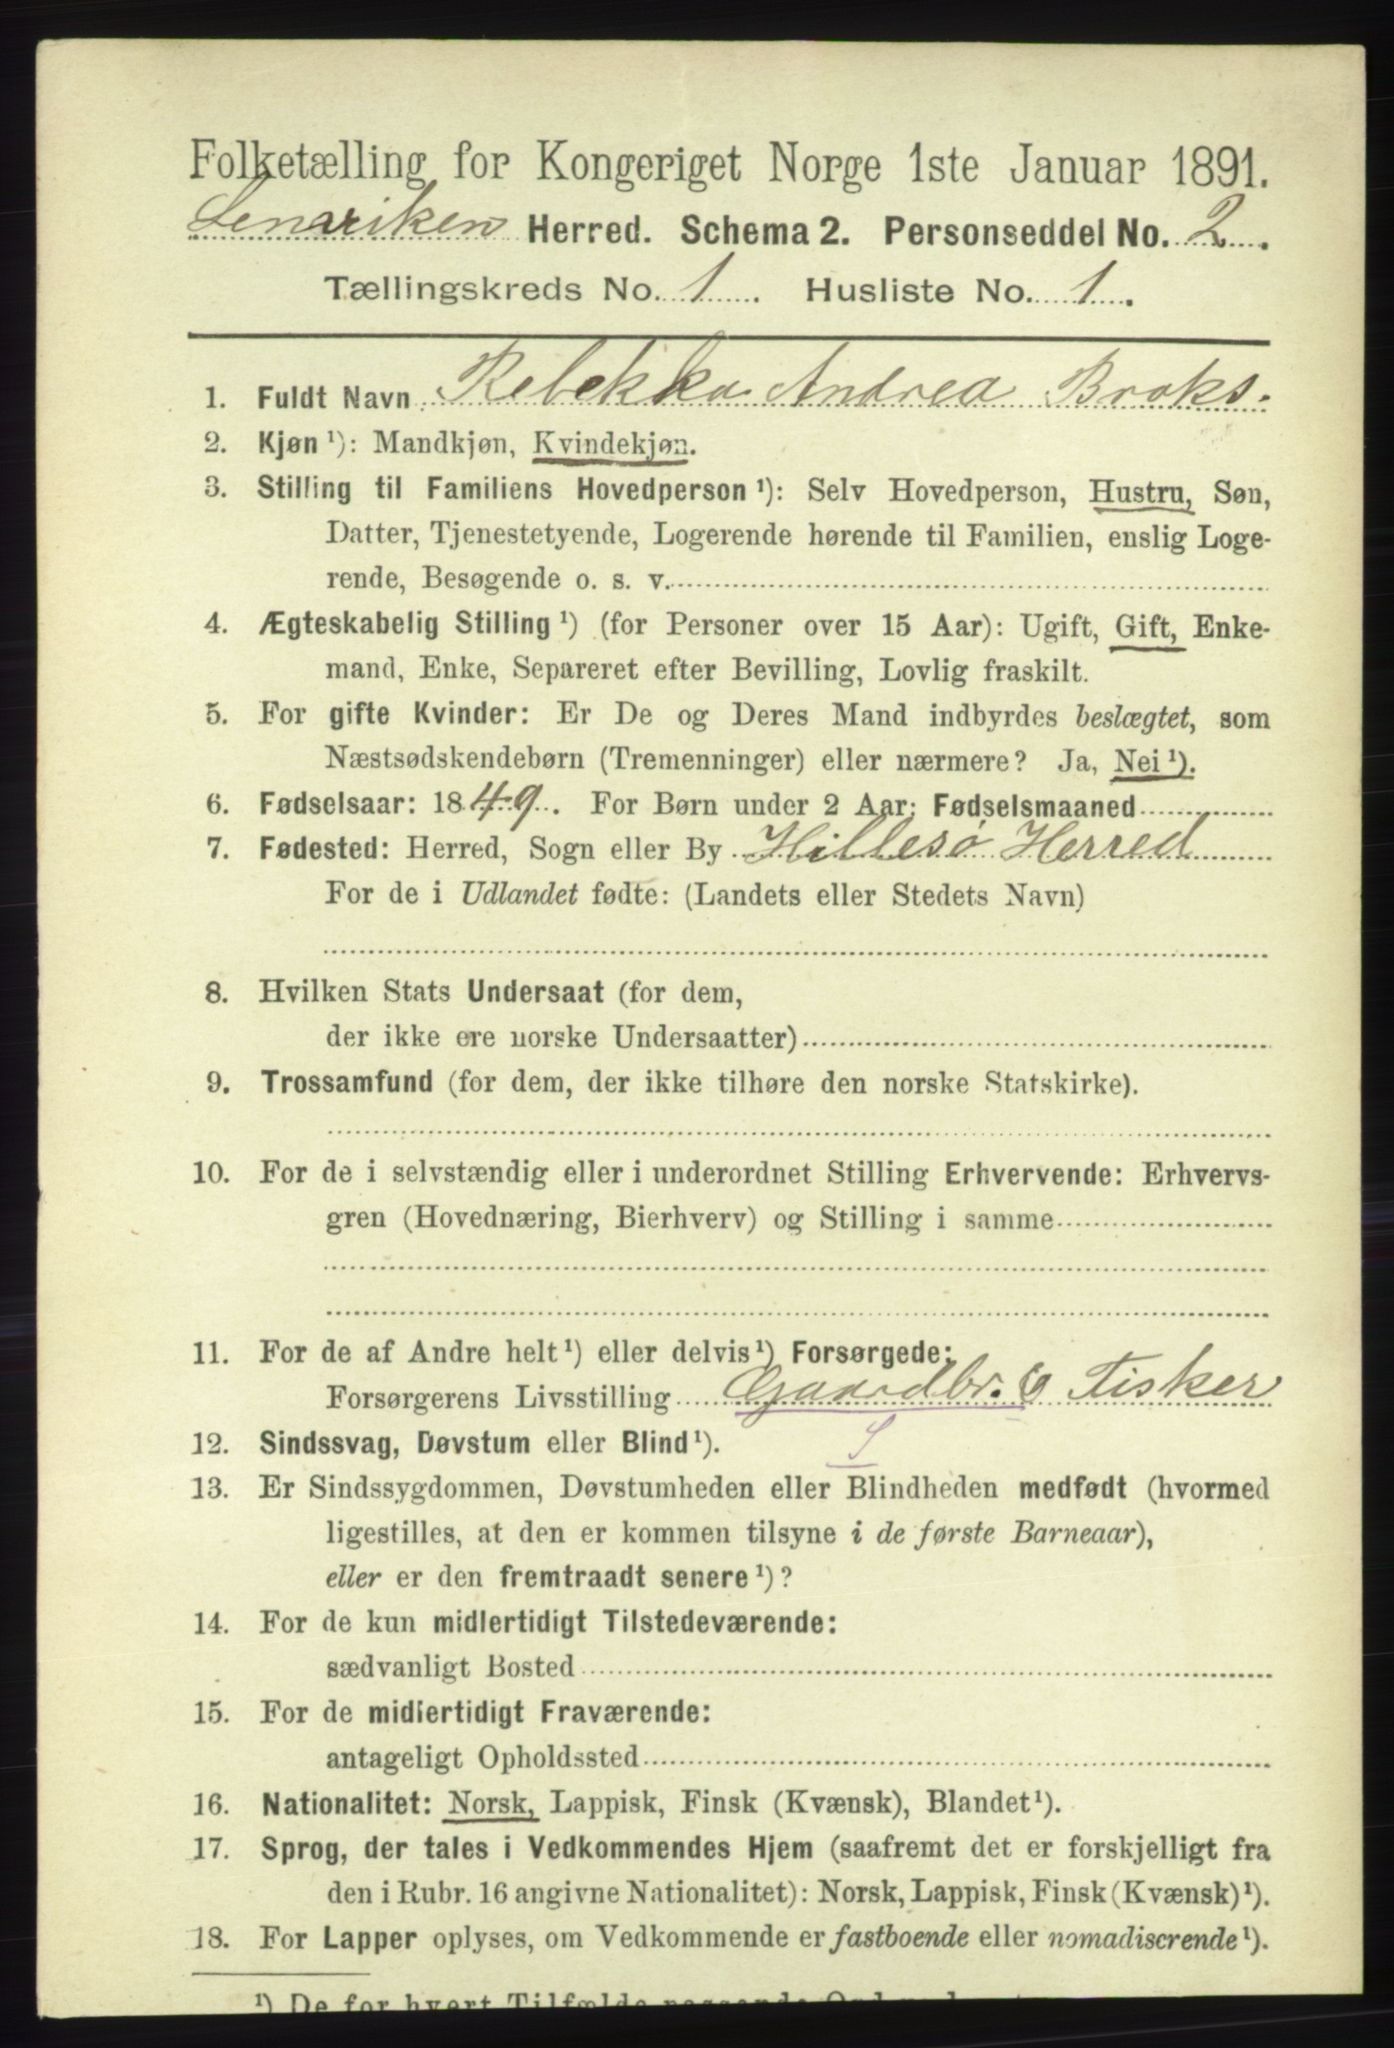 Folketælling for Kongeriget Norge 1ste Januar 1891.
Lenvriken Herred. Schema 2. Personseddel No. 2.
Tællingskreds No. 1. Husliste No. 1.
1. Fuldt Navn Rebekka Andrea Broks.
2. Kjøn ¹): Mandkjøn, Kvindekjøn.
3. Stilling til Familiens Hovedperson ¹): Selv Hovedperson, Hustru, Søn,
Datter, Tjenestetyende, Logerende hørende til Familien, enslig Loge-
rende, Besøgende o. s. v.
4. Ægteskabelig Stilling ¹) (for Personer over 15 Aar): Ugift, Gift, Enke-
mand, Enke, Separeret efter Bevilling, Lovlig fraskilt.
5. For gifte Kvinder: Er De og Deres Mand indbyrdes beslægtet, som
Næstsødskendebørn (Tremenninger) eller nærmere? Ja, Nei ¹).
6. Fødselsaar: 1849. For Børn under 2 Aar: Fødselsmaaned
7. Fødested: Herred, Sogn eller By Hillesø Herred
For de i Udlandet fødte: (Landets eller Stedets Navn)
8. Hvilken Stats Undersaat (for dem,
der ikke ere norske Undersaatter)
9. Trossamfund (for dem, der ikke tilhøre den norske Statskirke).
10. For de i selvstændig eller i underordnet Stilling Erhvervende: Erhvervs-
gren (Hovednæring, Bierhverv) og Stilling i samme
11. For de af Andre helt ¹) eller delvis ¹) Forsørgede:
Forsørgerens Livsstilling Gaardbr. & Fisker
S
12. Sindssvag, Døvstum eller Blind ¹).
13. Er Sindssygdommen, Døvstumheden eller Blindheden medfødt (hvormed
ligestilles, at den er kommen tilsyne i de første Barneaar),
eller er den fremtraadt senere ¹)?
14. For de kun midlertidigt Tilstedeværende:
sædvanligt Bosted
15. For de midlertidigt Fraværende:
antageligt Opholdssted
16. Nationalitet: Norsk, Lappisk, Finsk (Kvænsk), Blandet ¹).
17. Sprog, der tales i Vedkommendes Hjem (saafremt det er forskjelligt fra
den i Rubr. 16 angivne Nationalitet): Norsk, Lappisk, Finsk (Kvænsk) ¹).
18. For Lapper oplyses, om Vedkommende er fastboende eller nomadiserende ¹).
¹) De for hvert Tilfælde passende